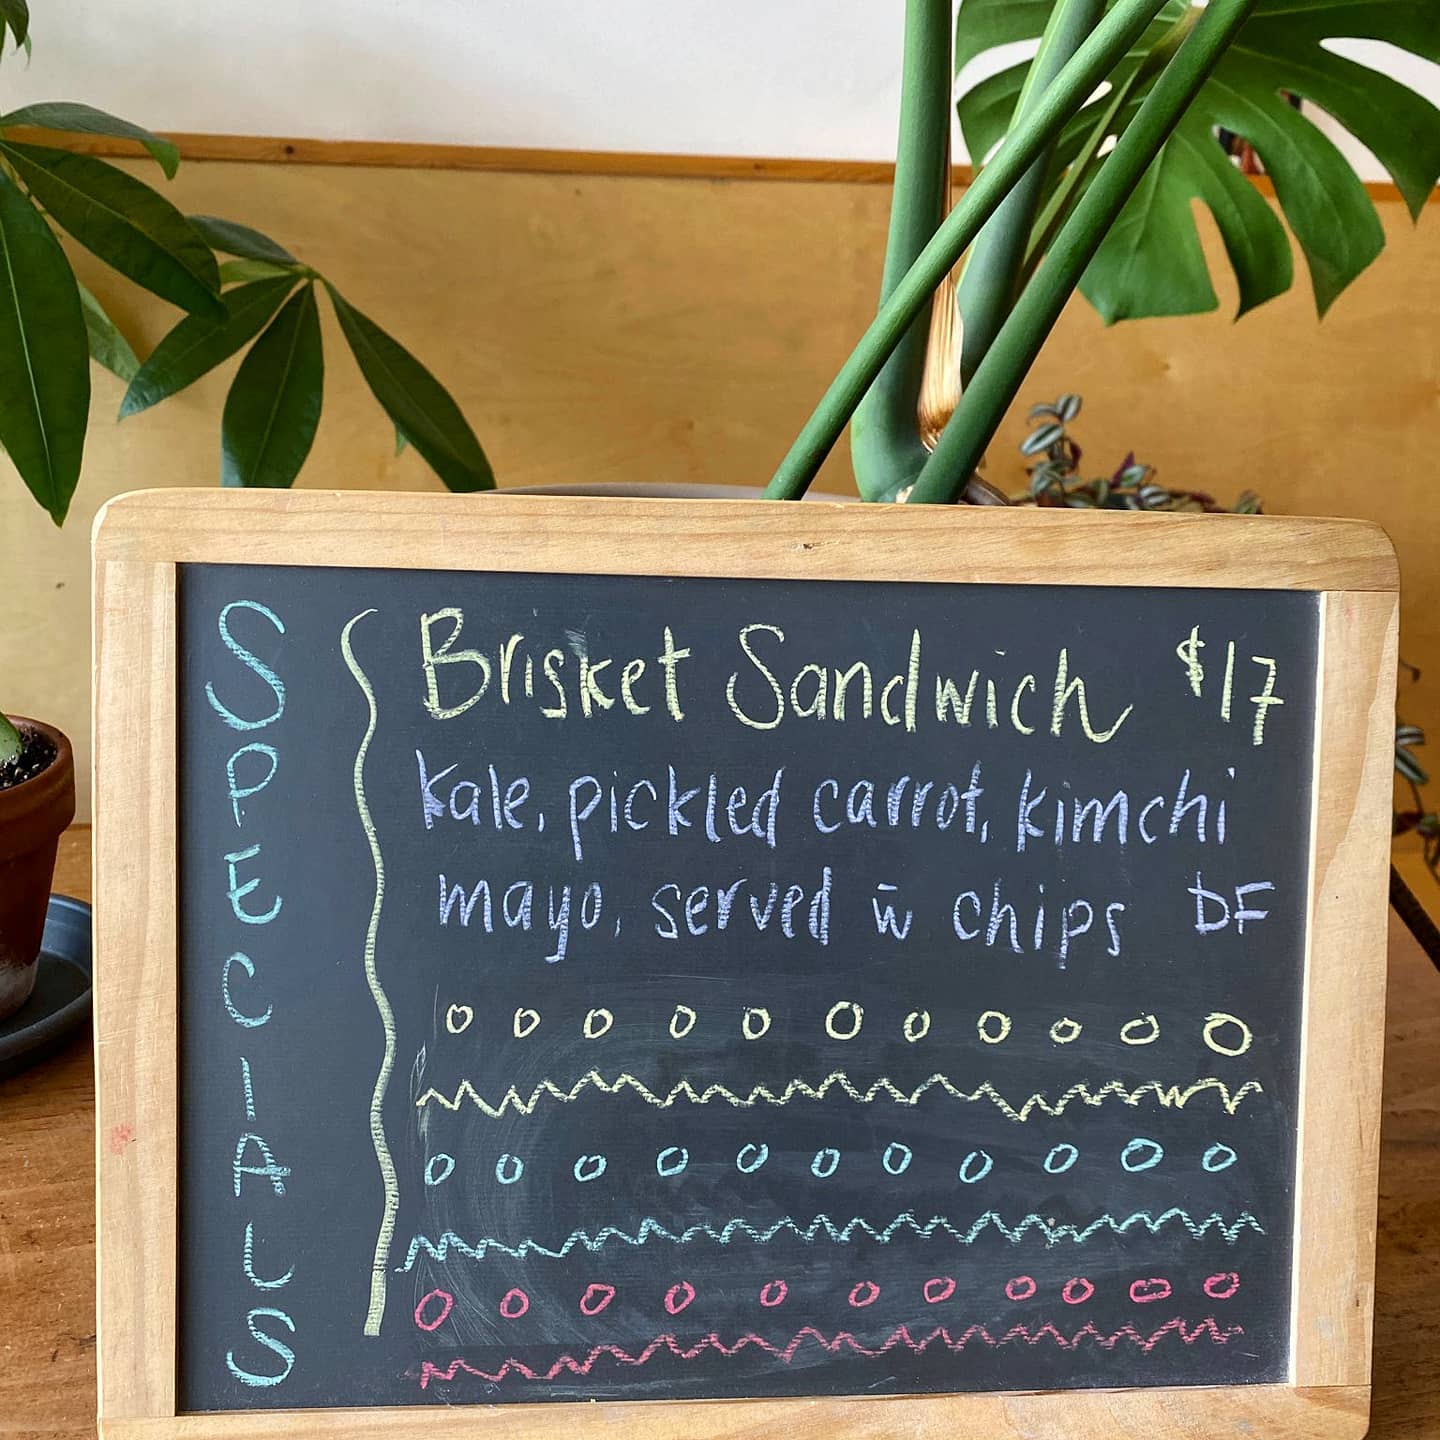 SPECIALS
Brisket Sandwich $17
kale, pickled carrot, kimchi
mayo, served w̄ chips DF